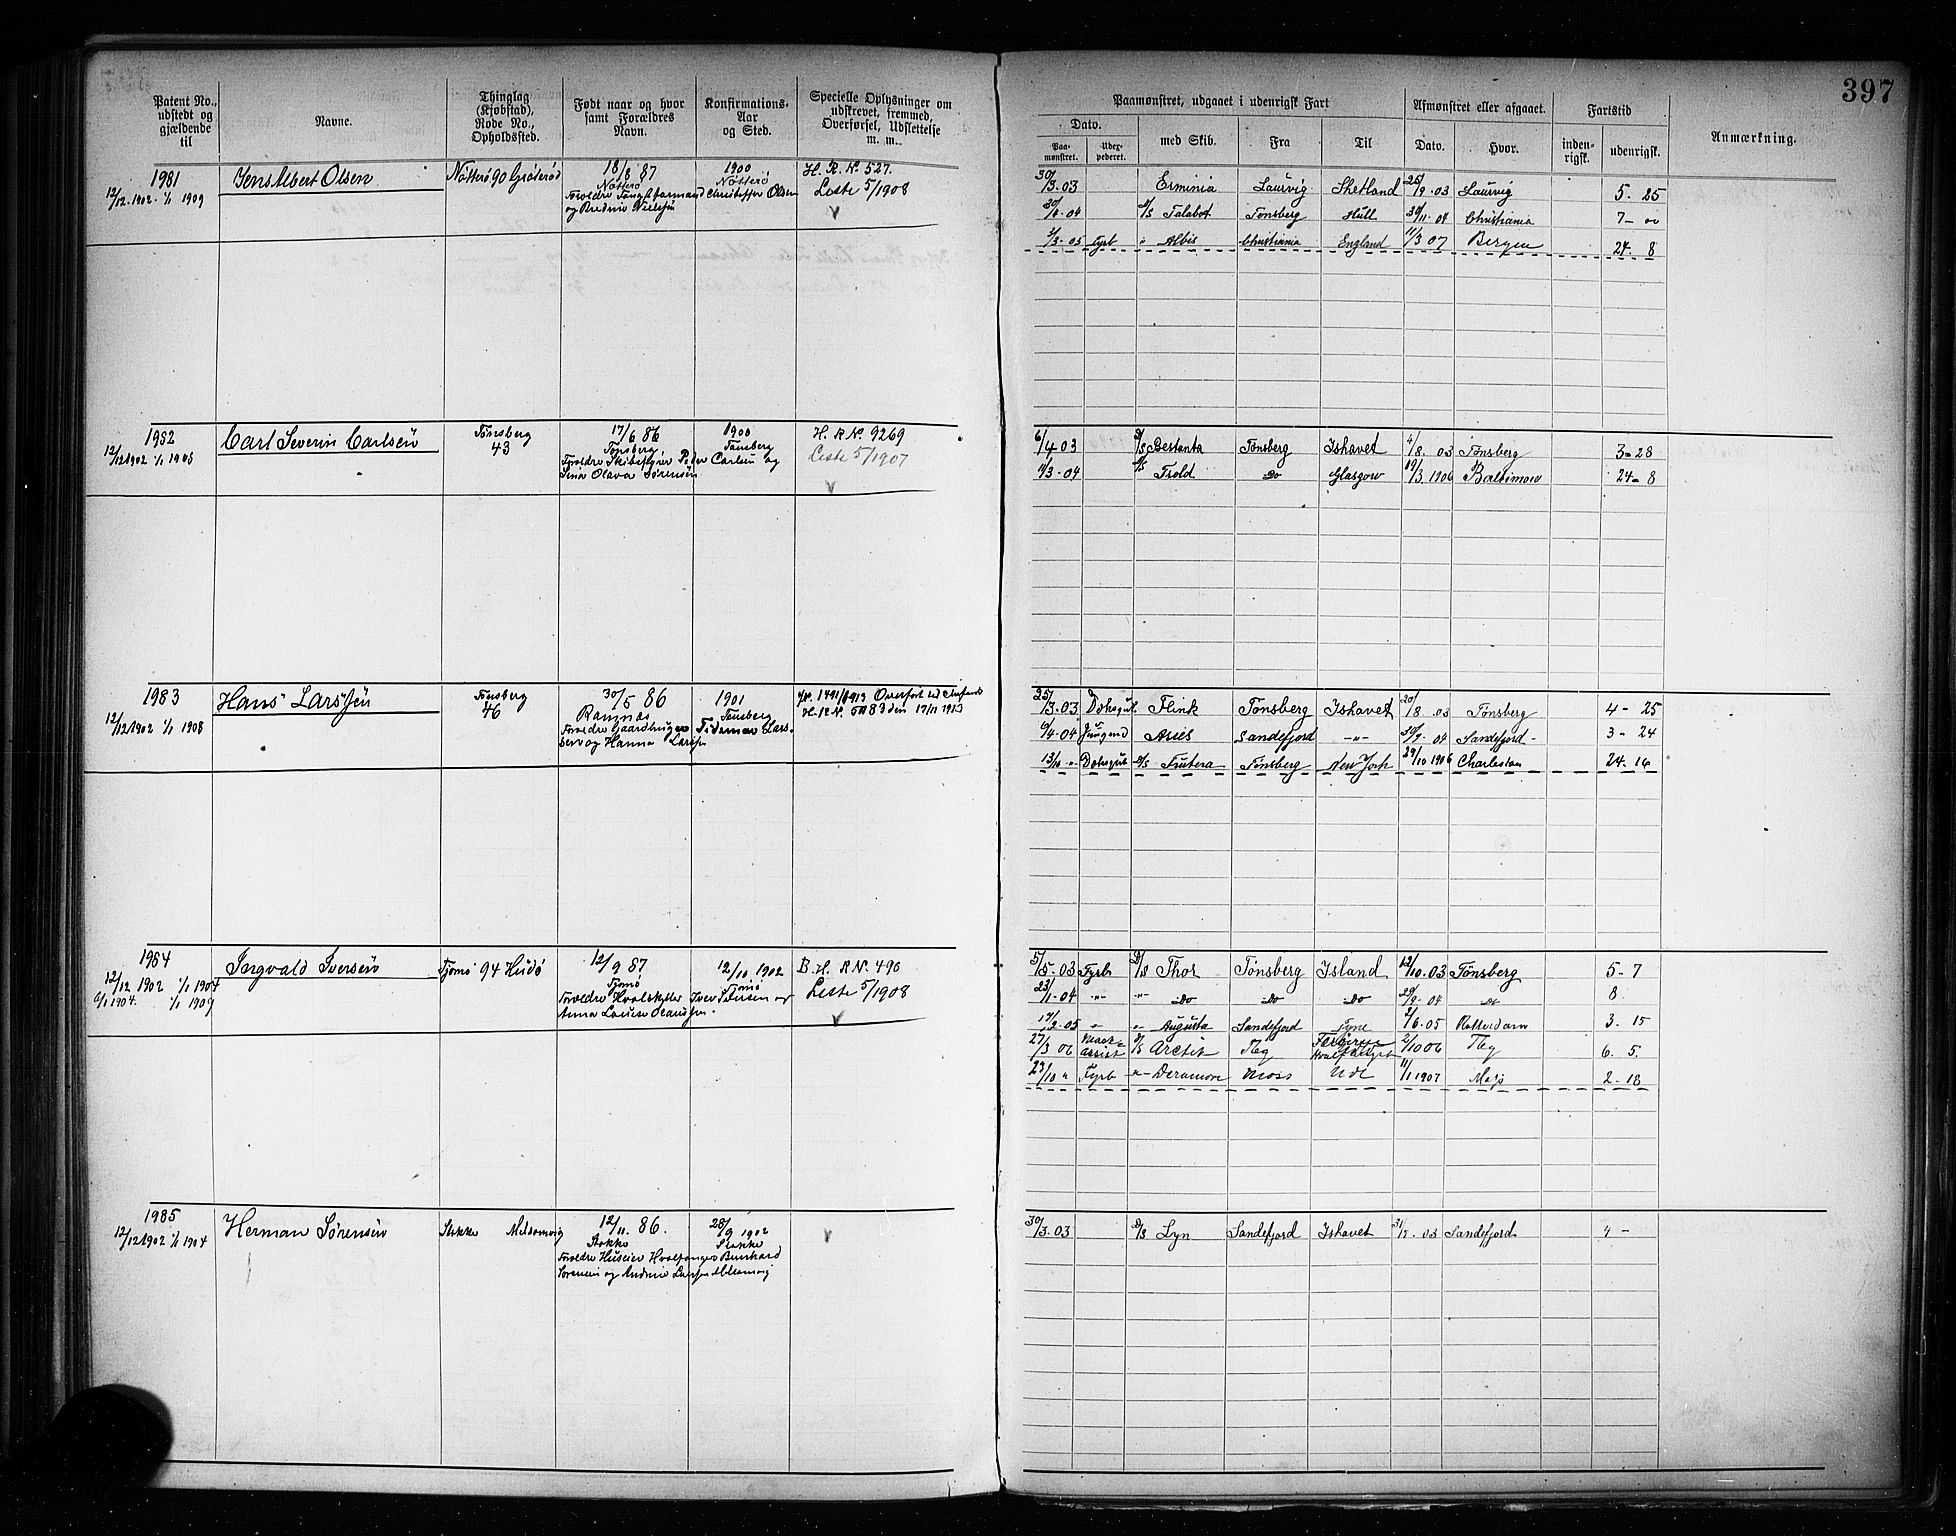 397
Patent No., udstedt og gjældende til
Navne.
Thinglag (Kjøbstad), Rode No., Opholdssted.
Født naar og hvor samt Forældres Navn.
Konfirmations-Aar og Sted.
Specielle Oplysninger om udskrevet, fremmed, Overførsel, Udslettelse m. m.
Paamønstret, udgaaet i udenrigsk Fart
Afmønstret eller afgaaet.
Fartstid
Anmærkning.
Dato.
Paa-mønstret.
Uder-pederet.
med Skib.
Fra
Til
Dato.
Hvor.
inden-rigsk.
udenrigsk.
1981 Jens Albert Olsen Nötterö 90 Gröteröd 18/8 87 1900 H. R. No 527.
12/12.1902. 1/1 1909 Nötterö Nötterö Leste 5/1908
Forældre Christoffer Olsen
og Nielsen
30/3.03 Erminia Laurvig Shetland 25/9.03 Laurvig 5-25
30/4.04 D/S Talabot Tönsberg Hull 30/11.04 Christiania 7-00
2/3.05 Fyrb " Albis Christiania England 11/3 07 Bergen 24-8
1982 Carl Severin Carlsen Tönsberg 17/6 86 1900 H. R No. 9269
12/12 1902 1/1 1908 43 Tönsberg Tønsberg Leste 5/1907
Forældre Peder Carlsen og
Sina Olava Sørensen
6/4 03 D/S Bestanta Tönsberg Ishavet 4/8.03 Tönsberg 3-28
11/3.04 D/S Trold Do Glasgow 19/3 1906 Baltimore 24-8
1983 Hans Larssen Tönsberg 30/5 86 1901
12/12 1902 1/1 1908 46 Ramnes Tönsberg den 17/11 1913
Forældre Gaardbruger Lars-
sen og Hanna Larsen
25/3.03 Flink Tönsberg Ishavet 20/8 03 Tönsberg 4-25
6/4.04 Jungmd Aries Sandefjord -"- 30/9.04 Sandefjord 3-24
13/10 " D/S Tönsberg New York 29/10 1906 Charleston 24-16
1984 Ingvald Iversen Tjømø 94 Hudø 12/9 87 12/10 1902 B. H. R No. 496
12/12 1902 1/1 1904 Tjømø Tjømø Leste 5/1908
6/1 1904. 1/1 1909 Forældre Iver Iversen og
Anna Lovise Olausen.
5/5.03 Fyrb D/S Thor Tönsberg Island 12/10.03 Tönsberg 5-7
23/1.04 -"- -"- Do Do Do 29/9.04 Do 8
17/2.05 " " Augusta Sandefjord Tyne 2/6.05 Rotterdam 3-15
27/3 06 assist D/S Arctik Tbg 2/10 06 Tbg 6.5.
23/10 " Fyrb -"- Deramore Moss Udl 11/1 1907 2-18
1985 Herman Sörensen Stokke 12/11. 86. 28/9 1902
12/12 1902 1/1 1904 Stokke Stokke
Forældre Hvalfanger
Sörensen og
30/3.03 D/S Lyn Sandefjord Ishavet 31/7.03 Sandefjord 4-